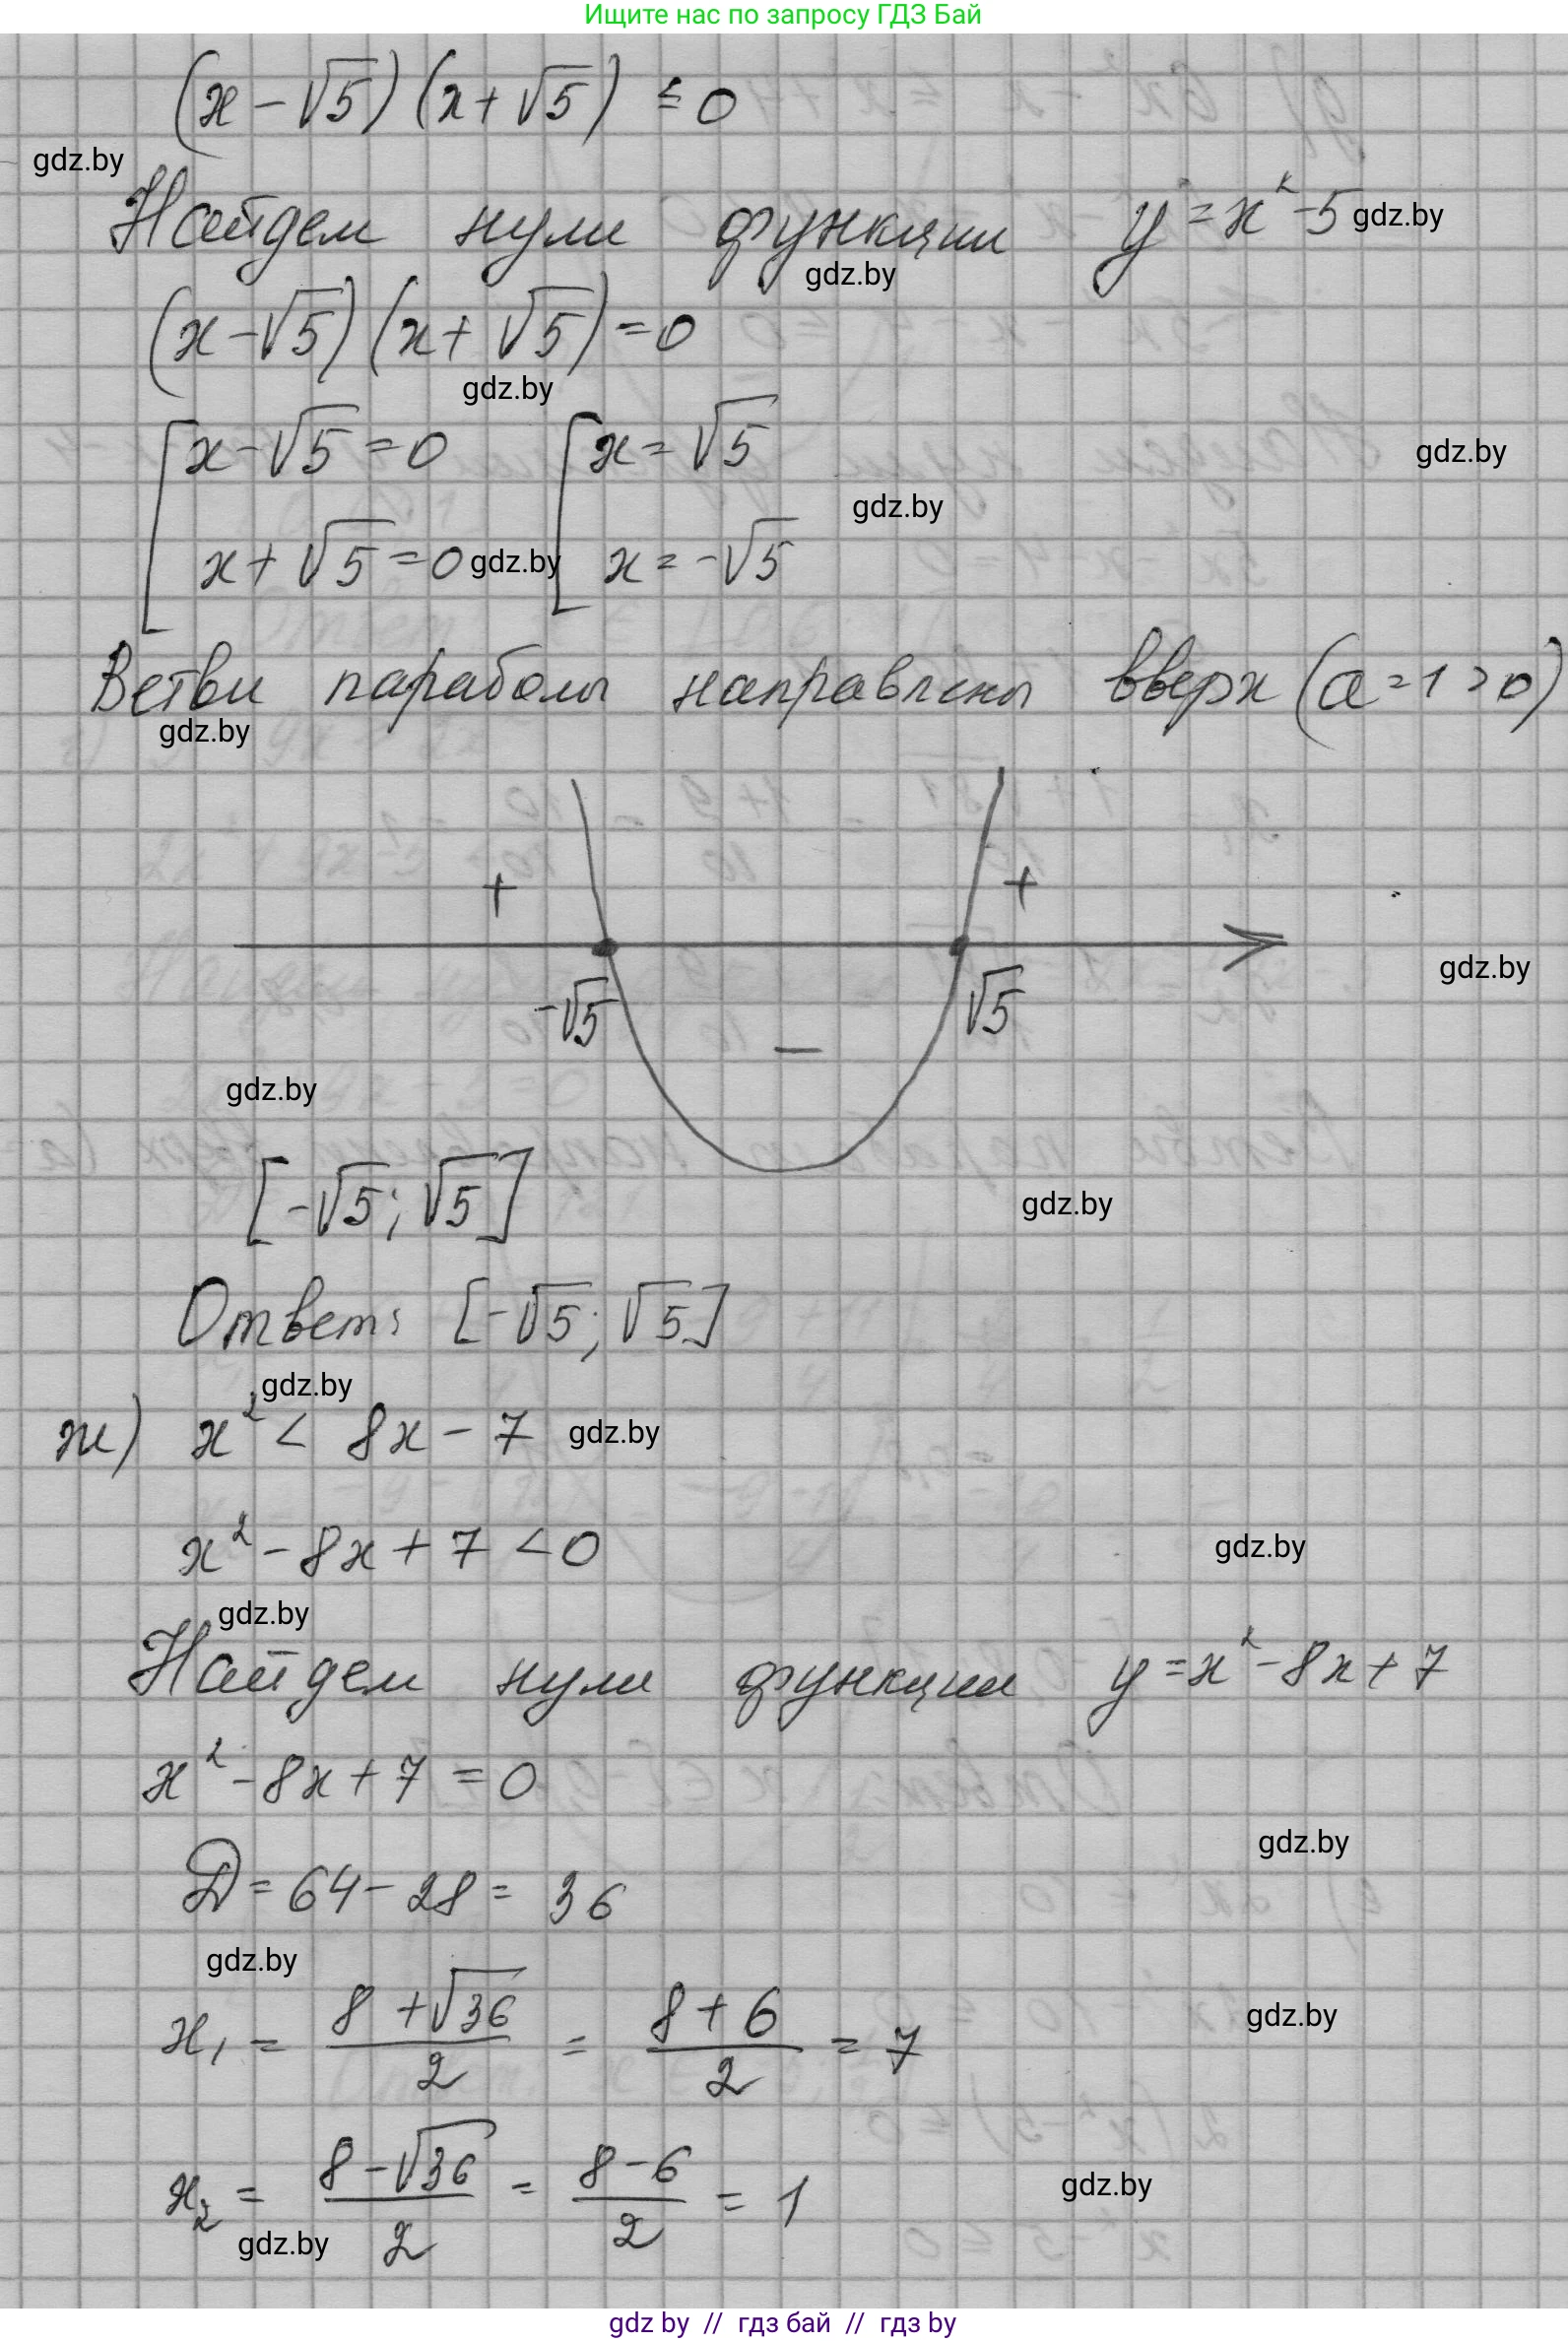 Ищите нас по запросу ГДЗ Бай
(x - √5)(x + √5) ≤ 0
gdz.by
Найдем нули функции y = x² - 5 gdz.by
gdz.by
(x - √5)(x + √5) = 0
gdz.by
[ x - √5 = 0 [ x = √5
gdz.by
gdz.by
x + √5 = 0 gdz.by x = -√5
Ветви параболы направлены вверх (a = 1 > 0)
gdz.by
+ +
gdz.by
-√5 √5
-
gdz.by
[-√5; √5]
gdz.by
Ответ: [-√5; √5]
gdz.by
ж) x² < 8x - 7 gdz.by
x² - 8x + 7 < 0
gdz.by
gdz.by
Найдем нули функции y = x² - 8x + 7
x² - 8x + 7 = 0
gdz.by
D = 64 - 28 = 36
gdz.by
x₁ = (8 + √36)/2 = (8 + 6)/2 = 7
gdz.by
x₂ = (8 - √36)/2 = (8 - 6)/2 = 1
gdz.by
gdz.by
gdz by // гдз бай // гдз by